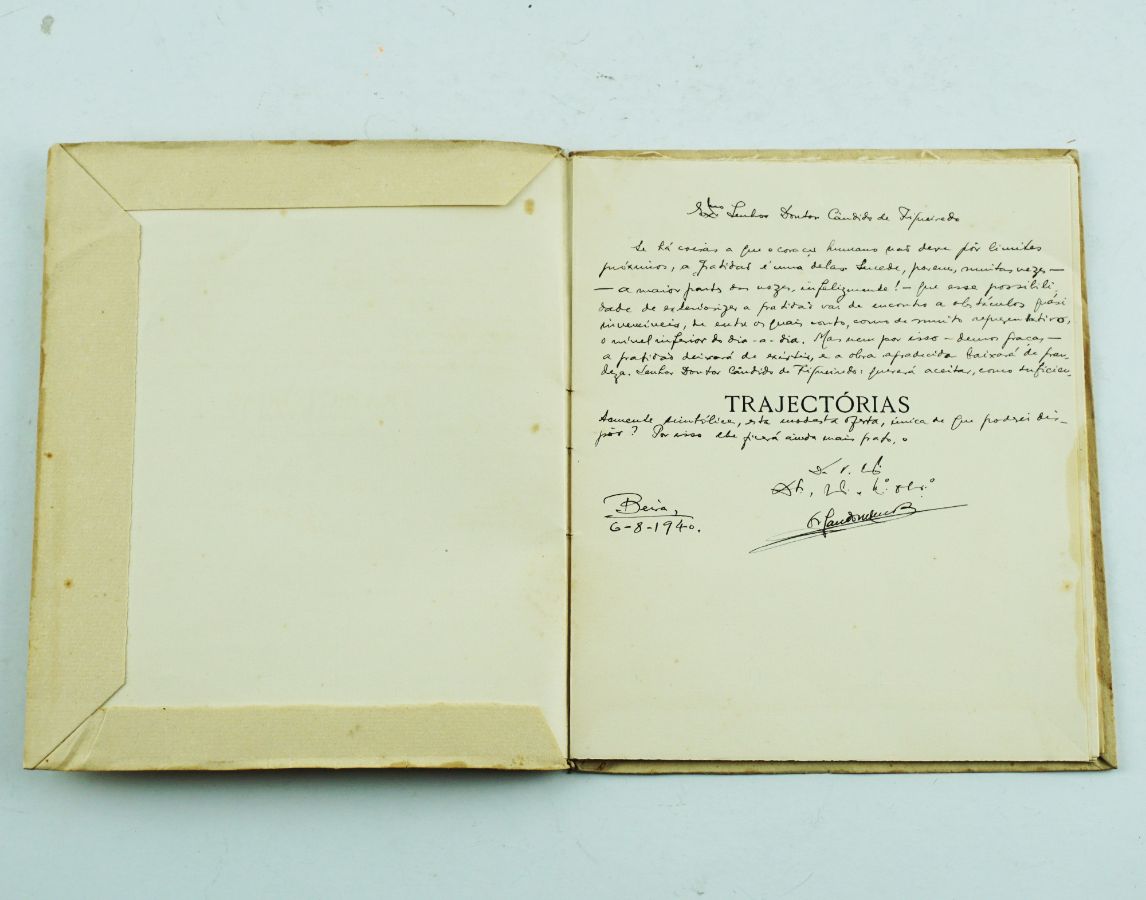 Ex.mo Senhor Doutor Cândido de Figueiredo
Se há coisas a que o coração humano não deve pôr limites
próximos, a gratidão é uma delas. Sucede, porém, muitas vezes —
— a maior parte das vezes, infelizmente! — que essa possibili
dade de exteriorizar a gratidão vai de encontro a obstáculos quási
invencíveis, de entre os quais conto, como de muito representativo,
o nível inferior do dia-a-dia. Mas nem por isso — demos graças —
a gratidão deixará de existir, e a obra agradecida baixará de gran-
deza. Senhor Doutor Cândido de Figueiredo: quererá aceitar, como suficien-
TRAJECTÓRIAS
temente simbólica, esta modesta oferta, única de que poderei dis-
pôr? Por isso lhe ficará ainda mais grato, o
Beira,
6-8-1940.